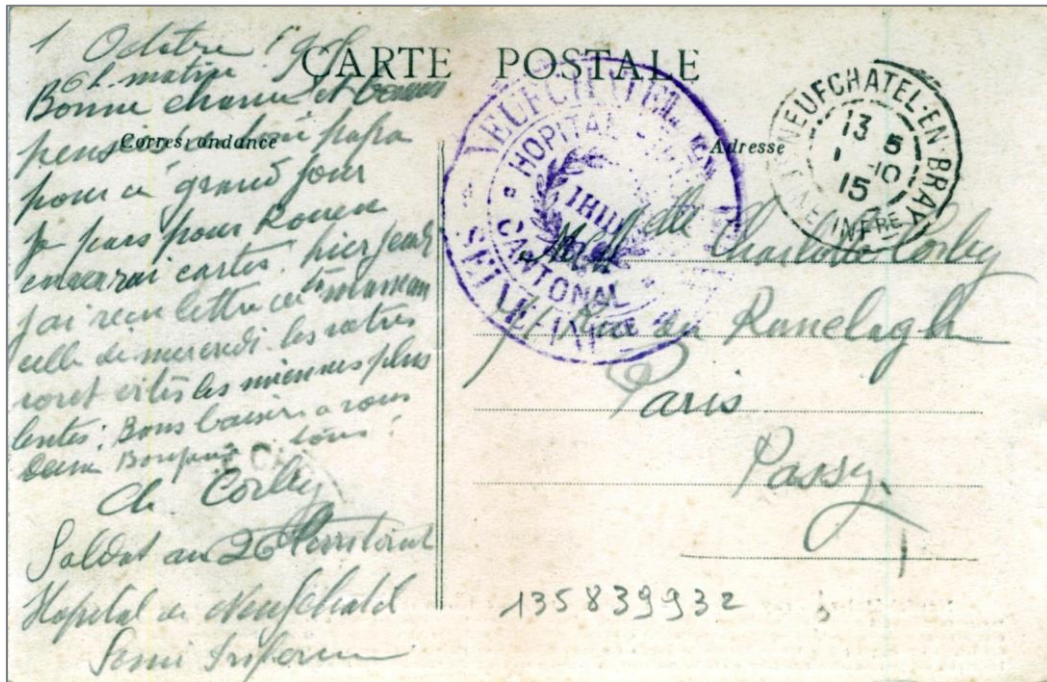 CARTE POSTALE
Correspondance
Adresse
1 Octobre
6 h. matin
Bonne chance et bonne
papa
pour ce grand jour
Je pars pour Rouen
enverrai cartes. hier jeudi
j'ai reçu lettre de maman
celle de mercredi. les votres
sont vites les miennes plus
lentes. Bons baisers a vous
deux Bonjour à tous.
Ch. Corby
Soldat au 26 Territorial
Hopital de Neufchatel
Seine Inferieure
NEUFCHATEL
HOPITAL
CANTONAL
NEUFCHATEL-EN-BRAY
13 5
1 -10
15
INFRE
Melle Charlotte Corby
Rue du Ranelagh
Paris
Passy.
135839932